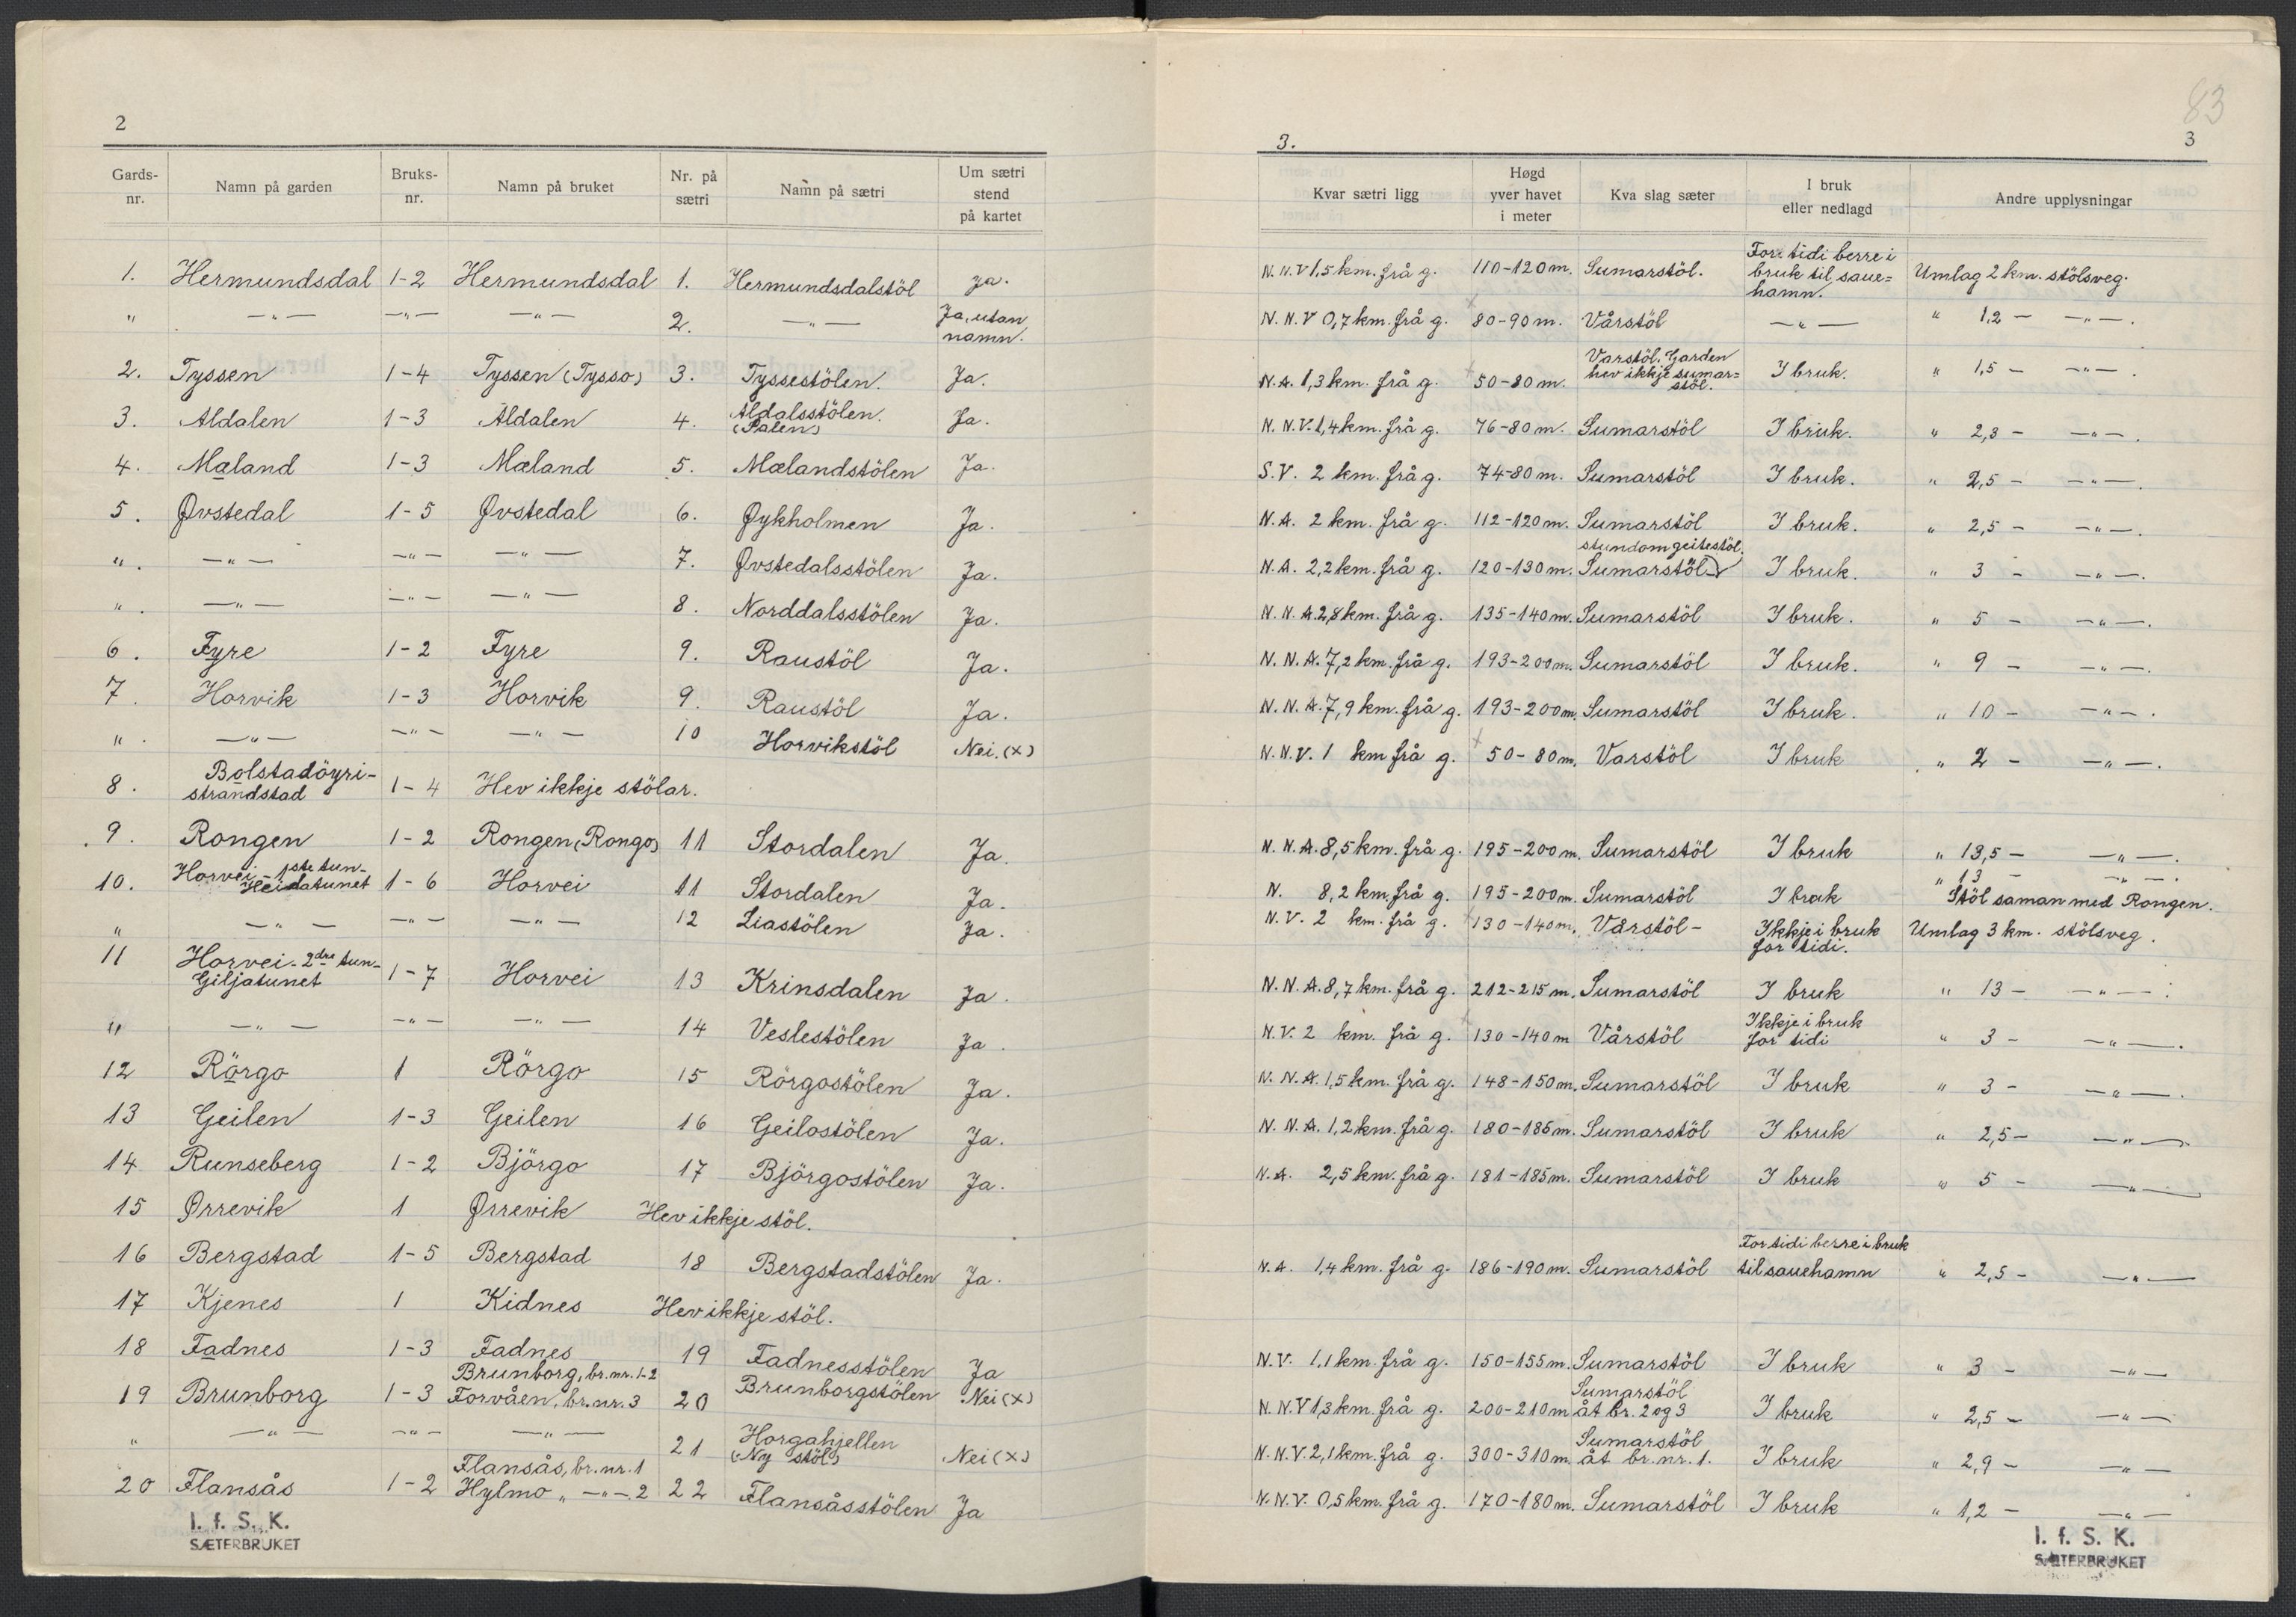 2
Gards-nr. Namn på garden Bruks-nr. Namn på bruket Nr. på sætri Namn på sætri Um sætri stend på kartet
1. Hermundsdal 1-2 Hermundsdal 1. Hermundsdalstöl Ja.
" —"— —"— —"— 2. —"— Ja, utan namn.
2. Tyssen 1-4 Tyssen (Tysso) 3. Tyssestölen. Ja.
3. Aldalen 1-3 Aldalen 4. Aldalsstölen. (Palen) Ja.
4. Mæland 1-3 Mæland 5. Mælandstölen Ja.
5. Øvstedal 1-5 Øvstedal 6. Øykholmen Ja.
" . —"— —"— —"— 7. Øvstedalsstölen Ja.
" . —"— —"— —"— 8. Norddalsstölen Ja.
6. Fyre 1-2 Fyre 9. Raustöl Ja.
7. Horvik 1-3 Horvik 9. Raustöl Ja.
" . —"— —"— —"— 10 Horvikstöl Nei. (x)
8. Bolstadöyri-strandstad 1-4 Hev ikkje stölar.
9. Rongen 1-2 Rongen (Rongo) 11 Stordalen Ja.
10. Horvei - 1ste tun - Heidatunet 1-6 Horvei 11 Stordalen Ja.
" —"— —"— —"— 12 Liastölen Ja.
11 Horvei - 2dre tun - Giljatunet 1-7 Horvei 13 Krinsdalen Ja.
" —"— —"— —"— 14 Veslestölen Ja.
12 Rörgo 1 Rörgo 15 Rörgostölen Ja.
13 Geilen 1-3 Geilen 16 Geilostölen Ja.
14 Runseberg 1-2 Björgo 17 Björgostölen Ja.
15 Ørrevik 1 Ørrevik Hev ikkje stöl.
16 Bergstad 1-5 Bergstad 18 Bergstadstölen Ja.
17 Kjenes 1 Kidnes Hev ikkje stöl.
18 Fadnes 1-3 Fadnes 19 Fadnesstölen Ja
19 Brunborg 1-3 Brunborg, br.nr. 1-2 Forvåen, br.nr. 3 20 Brunborgstölen Nei (x)
" —"— —"— —"— 21 Horgahjellen (Ny stöl) Nei (x)
20 Flansås 1-2 Flansås, br.nr. 1 Hylmo " —"— 2 22 Flansåsstölen Ja
I. f. S. K.
SÆTERBRUKET
83
3. 3
Kvar sætri ligg Høgd yver havet i meter Kva slag sæter I bruk eller nedlagd Andre upplysningar
N.N.V 1,5 km. frå g. 110-120 m. Sumarstöl. For tidi berre i bruk til saue=hamn. Umlag 2 km. stölsveg.
N.N.V 0,7 km. frå g. 80-90 m. Vårstöl —"— " 1,2 — —"—.
N.A. 1,3 km. frå g. 50-80 m. Varstöl. Garden hev ikkje sumar=stöl. I bruk. " 1,5 — —"—.
N.N.V. 1,4 km. frå g. 76-80 m. Sumarstöl I bruk. " 2,3 — —"—.
S.V. 2 km. frå g. 74-80 m. Sumarstöl I bruk. " 2,5 — —"—.
N.A. 2 km. frå g. 112-120 m. Sumarstöl I bruk. " 2,5 — —"—.
N.A. 2,2 km. frå g. 120-130 m. Sumarstöl stundom geitestöl. I bruk. " 3 — —"—.
N.N.A. 2,8 km. frå g. 135-140 m. Sumarstöl I bruk. " 5 — —"—.
N.N.A. 7,2 km. frå g. 193-200 m. Sumarstöl I bruk. " 9 — —"—.
N.N.A. 7,9 km. frå g. 193-200 m. Sumarstöl I bruk. " 10 — —"—.
N.N.V. 1 km frå g. 50-80 m. Varstöl I bruk " 2 — —"—.
N.N.A. 8,5 km. frå g. 195-200 m. Sumarstöl I bruk " 13,5 — —"—.
N. 8,2 km. frå g. 195-200 m. Sumarstöl I bruk " 13 — —"—. Stöl saman med Rongen.
N.V. 2 km. frå g. 130-140 m. Vårstöl - Ikkje i bruk for tidi. Umlag 3 km. stölsveg.
N.N.A. 8,7 km. frå g. 212-215 m. Sumarstöl I bruk " 13 — —"—.
N.V. 2 km. frå g. 130-140 m Vårstöl Ikkje i bruk for tidi " 3 — —"—.
N.N.A. 1,5 km. frå g. 148-150 m. Sumarstöl I bruk " 3 — —"—.
N.N.A. 1,2 km. frå g. 180-185 m. Sumarstöl I bruk " 2,5 — —"—
N.A. 2,5 km. frå g. 181-185 m. Sumarstöl I bruk " 5 — —"—
N.A. 1,4 km. frå g. 186-190 m. Sumarstöl For tidi berre i bruk til sauehamn " 2,5 — —"—
N.V. 1,1 km. frå g. 150-155 m. Sumarstöl I bruk " 3 — —"—
N.N.V 1,3 km. frå g. 200-210 m Sumarstöl åt br. 2 og 3 I bruk " 2,5 — —"—
N.N.V. 2,1 km. frå g. 300-310 m. Sumarstöl åt br.nr. 1. I bruk " 2,9 — —"—
N.N.V. 0,5 km. frå g. 170-180 m. Sumarstöl I bruk " 1,2 — —"—
I. f. S. K.
SÆTERBRUKET